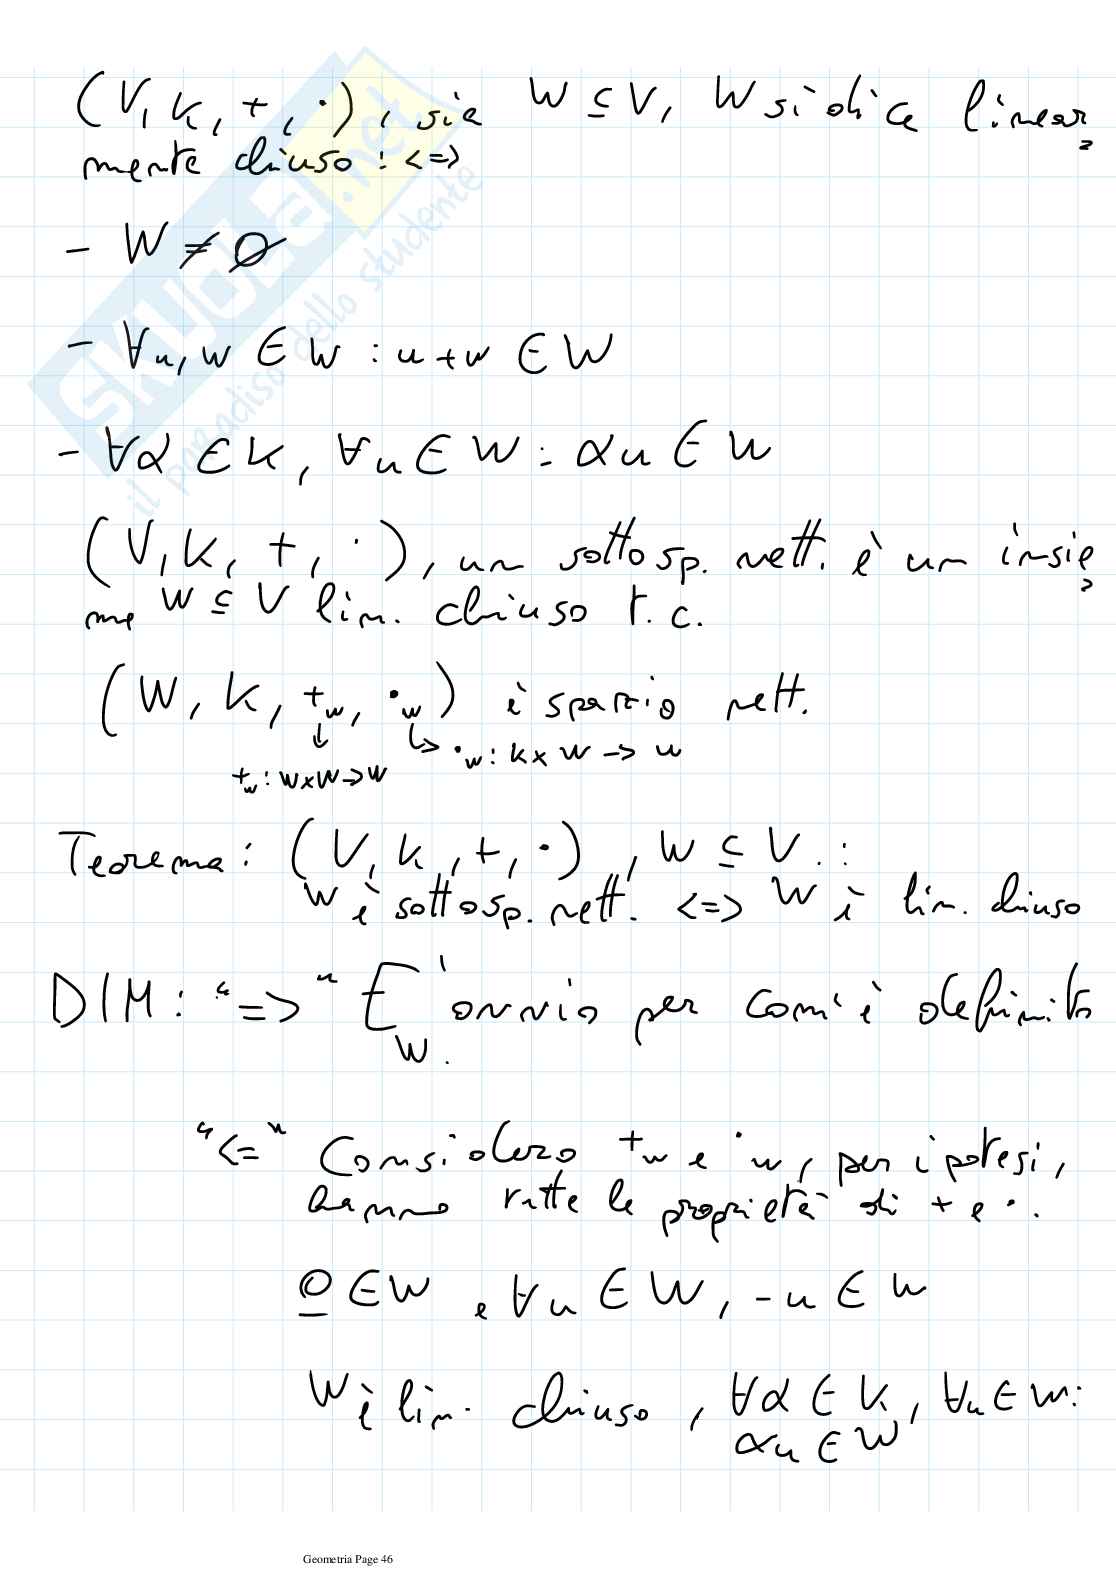 (V, K, +, ·), sia W ⊆ V, W si dice linear
mente chiuso : <=>
- W ≠ ∅
- ∀u, w ∈ W : u + w ∈ W
- ∀α ∈ K, ∀u ∈ W : αu ∈ W
(V, K, +, ·), un sottosp. vett. è un insie
me W ⊆ V lin. chiuso t.c.
(W, K, +w, ·w) è spazio vett.
·w : K x W -> W
+w : W x W -> W
Teorema: (V, K, +, ·), W ⊆ V. :
W è sottosp. vett. <=> W è lin. chiuso
DIM: "=>" E' ovvio per com'è definito
W.
"<=" Considero +w e ·w, per ipotesi,
hanno tutte le proprietà di + e ·.
0 ∈ W e ∀u ∈ W, -u ∈ W
W è lin. chiuso, ∀α ∈ K, ∀u ∈ W:
αu ∈ W
SKUOLA.net
il paradiso dello studente
Geometria Page 46